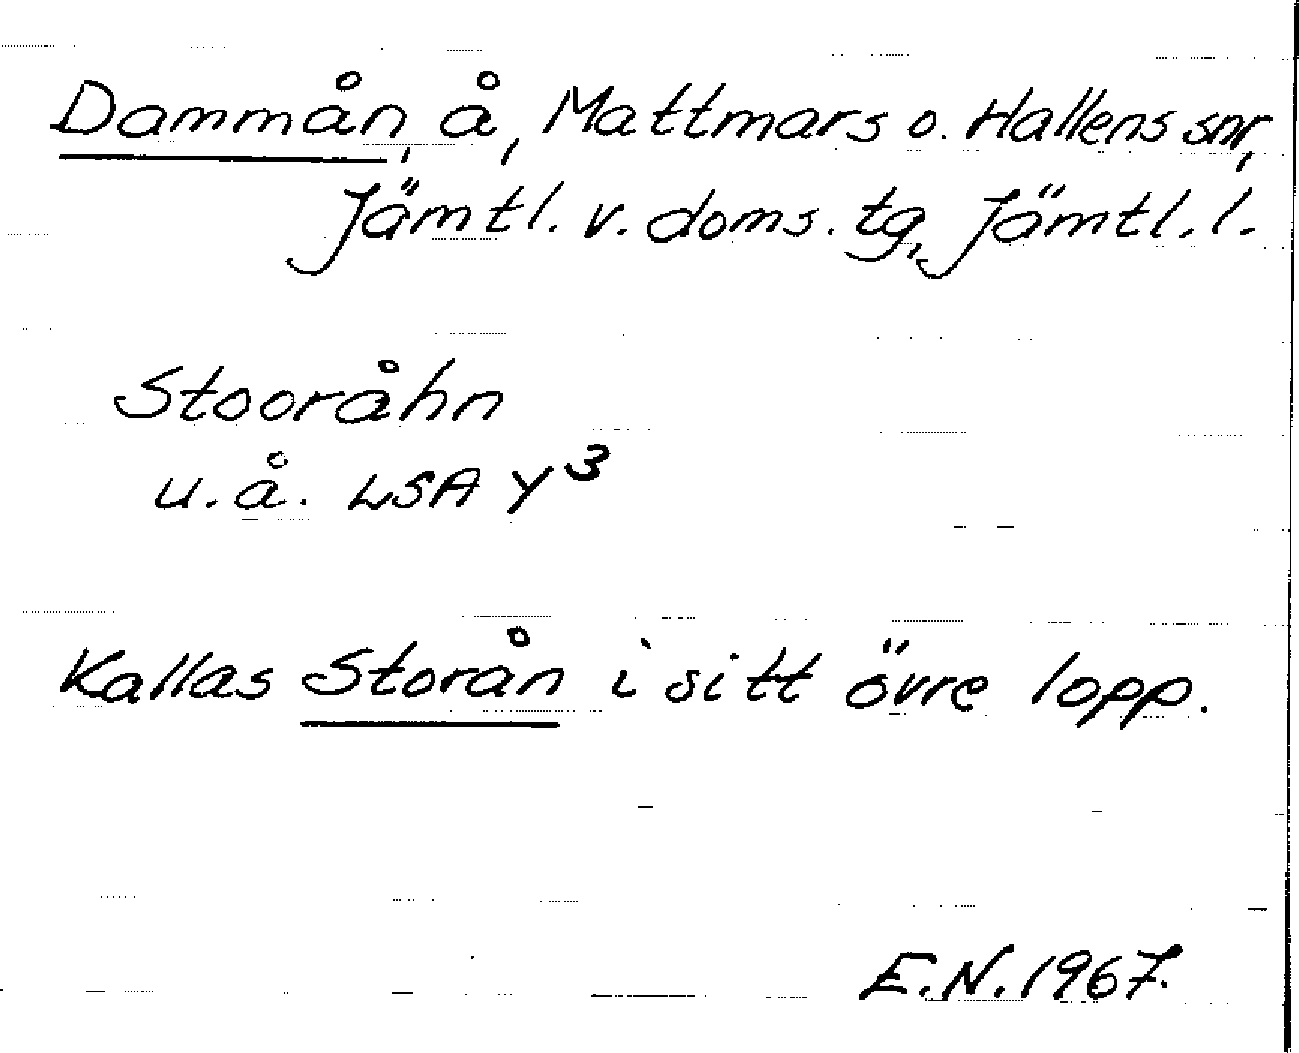 Dammån, å, Mattmars o. Hallens snr,
Jämtl. v. doms. tg, Jämtl. l.
Stooråhn
u.å. LSA Y3
Kallas Storån i sitt övre lopp.
E.N. 1967.